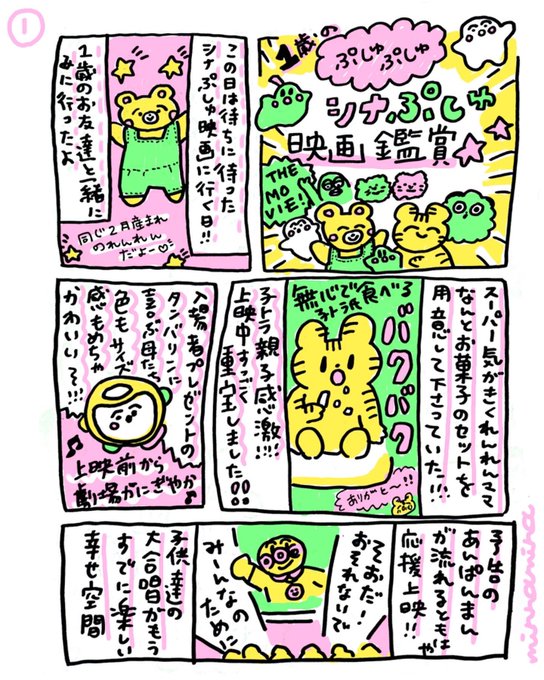 ①
1歳の
ぷしゅぷしゅ
シナぷしゅ
映画鑑賞
THE
MO
VIE!
この日は待ちに待った
シナぷしゅ映画に行く日!!
1歳のお友達と一緒に
みに行ったよ
同じ2月産まれ
のれんれん
だよー♡
スーパー気がきくれんれんママ
なんとお菓子のセットを
用意して下さっていた!!!
無心で食べる
子トラ氏
バクバク
ありがと〜!!
子トラ親子感激!!!
上映中すっごく
重宝しました!!
入場者プレゼントの
タンバリンに
喜ぶ母た
色もサイズ
感もめちゃ
かわいい〜!!!
♪上映前から
劇場がにぎやか♪
予告の
あんぱんまん
が流れるともはや
応援上映!!
そおだ!
おそれないで
みーんなの
ために
子供達の
大合唱がもう
すでに楽しい
幸せ空間
mirramira